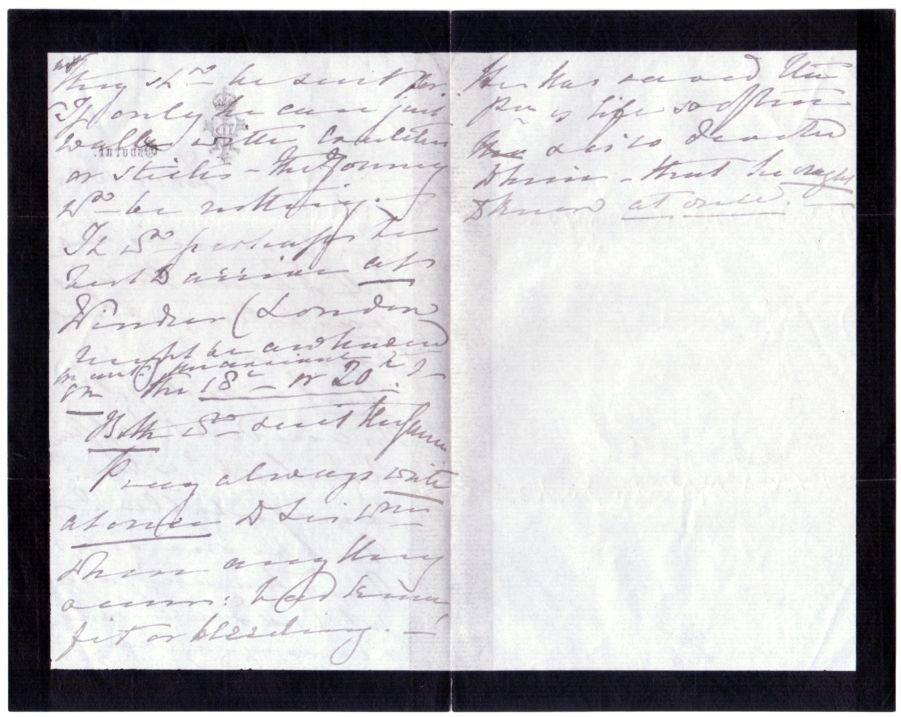 they shd be sent for.
If only he can just
walk with crutches
or sticks – the journey
wd be nothing. –
It wd perhaps be
best to arrive at
Windsor (London
might be awkward
on the 18th or 20th.) –
Both wd suit the Queen
Pray always write
at once to Sir Wm
when any thing
occurs: bad
fit or bleeding. –
He has saved the
Pce's life so often
& is so devoted
to him – that he ought
to know at once.